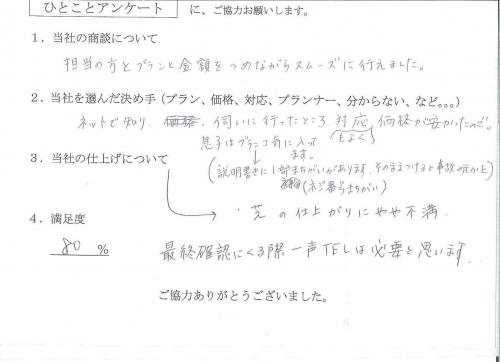 ひとことアンケート に、ご協力お願いします。
1．当社の商談について
担当の方とプランと金額をつめながらスムーズに行えました。
2．当社を選んだ決め手（プラン、価格、対応、プランナー、分からない、など。。。）
ネットで知り、価格、伺いに行ったところ 対応 価格が安かったので。
もよく
息子はブランコ気に入ってます。
3．当社の仕上げについて
（説明書きに1部まちがいがあります、そのままつけると事故の元かと）
（ネジ番号まちがい）
・芝の仕上がりにやや不満
4．満足度
80 %
最終確認にくる際一声TELは必要と思います。
ご協力ありがとうございました。